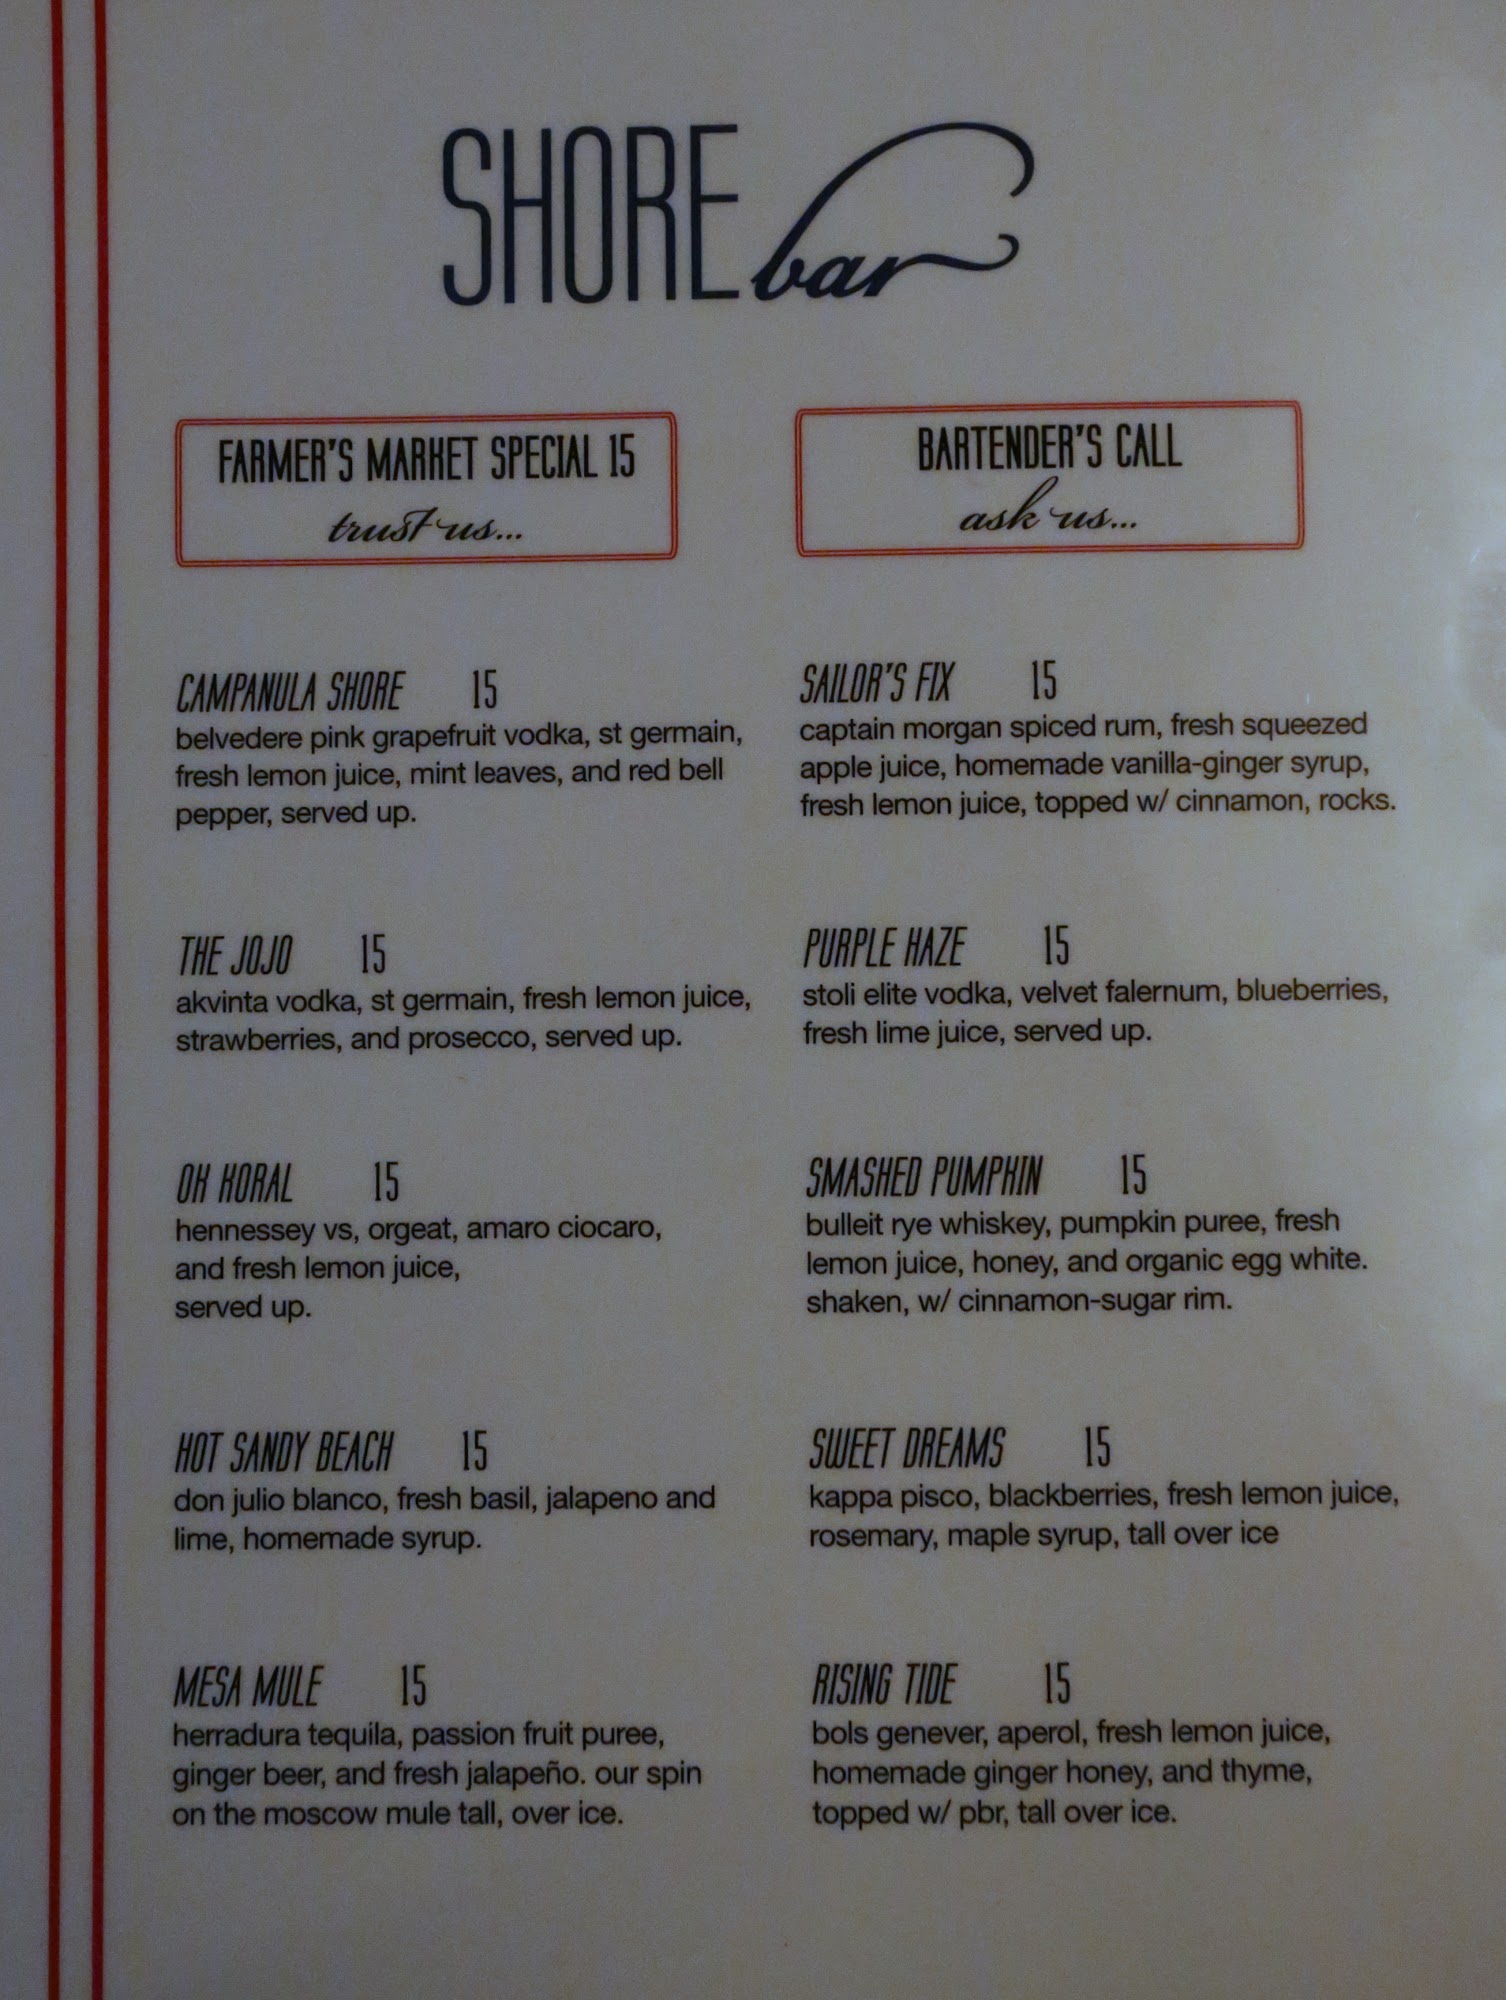 SHORE bar
FARMER'S MARKET SPECIAL 15
trust us...
BARTENDER'S CALL
ask us...
CAMPANULA SHORE 15
belvedere pink grapefruit vodka, st germain,
fresh lemon juice, mint leaves, and red bell
pepper, served up.
THE JOJO 15
akvinta vodka, st germain, fresh lemon juice,
strawberries, and prosecco, served up.
OH KORAL 15
hennessey vs, orgeat, amaro ciocaro,
and fresh lemon juice,
served up.
HOT SANDY BEACH 15
don julio blanco, fresh basil, jalapeno and
lime, homemade syrup.
MESA MULE 15
herradura tequila, passion fruit puree,
ginger beer, and fresh jalapeño. our spin
on the moscow mule tall, over ice.
SAILOR'S FIX 15
captain morgan spiced rum, fresh squeezed
apple juice, homemade vanilla-ginger syrup,
fresh lemon juice, topped w/ cinnamon, rocks.
PURPLE HAZE 15
stoli elite vodka, velvet falernum, blueberries,
fresh lime juice, served up.
SMASHED PUMPKIN 15
bulleit rye whiskey, pumpkin puree, fresh
lemon juice, honey, and organic egg white.
shaken, w/ cinnamon-sugar rim.
SWEET DREAMS 15
kappa pisco, blackberries, fresh lemon juice,
rosemary, maple syrup, tall over ice
RISING TIDE 15
bols genever, aperol, fresh lemon juice,
homemade ginger honey, and thyme,
topped w/ pbr, tall over ice.